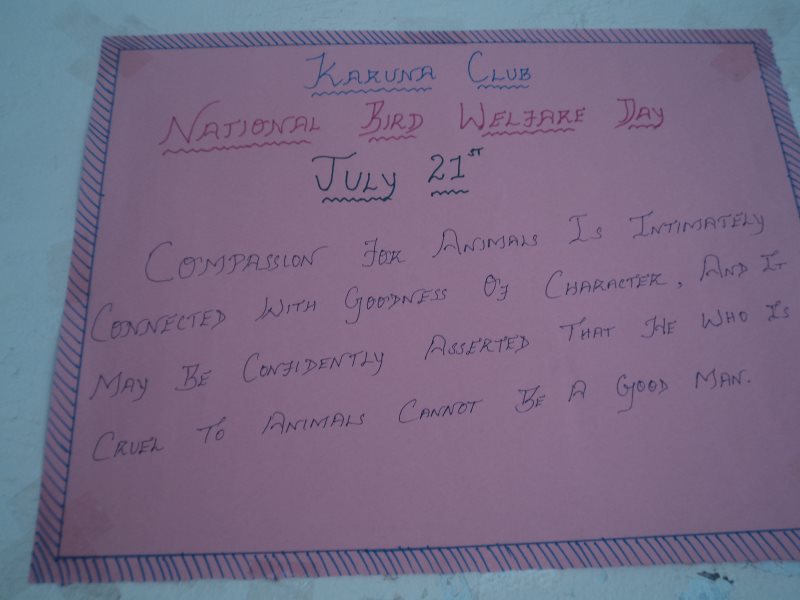 KARUNA CLUB
NATIONAL BIRD WELFARE DAY
JULY 21ST
COMPASSION FOR ANIMALS IS INTIMATELY
CONNECTED WITH GOODNESS OF CHARACTER, AND IT
MAY BE CONFIDENTLY ASSERTED THAT HE WHO IS
CRUEL TO ANIMALS CANNOT BE A GOOD MAN.